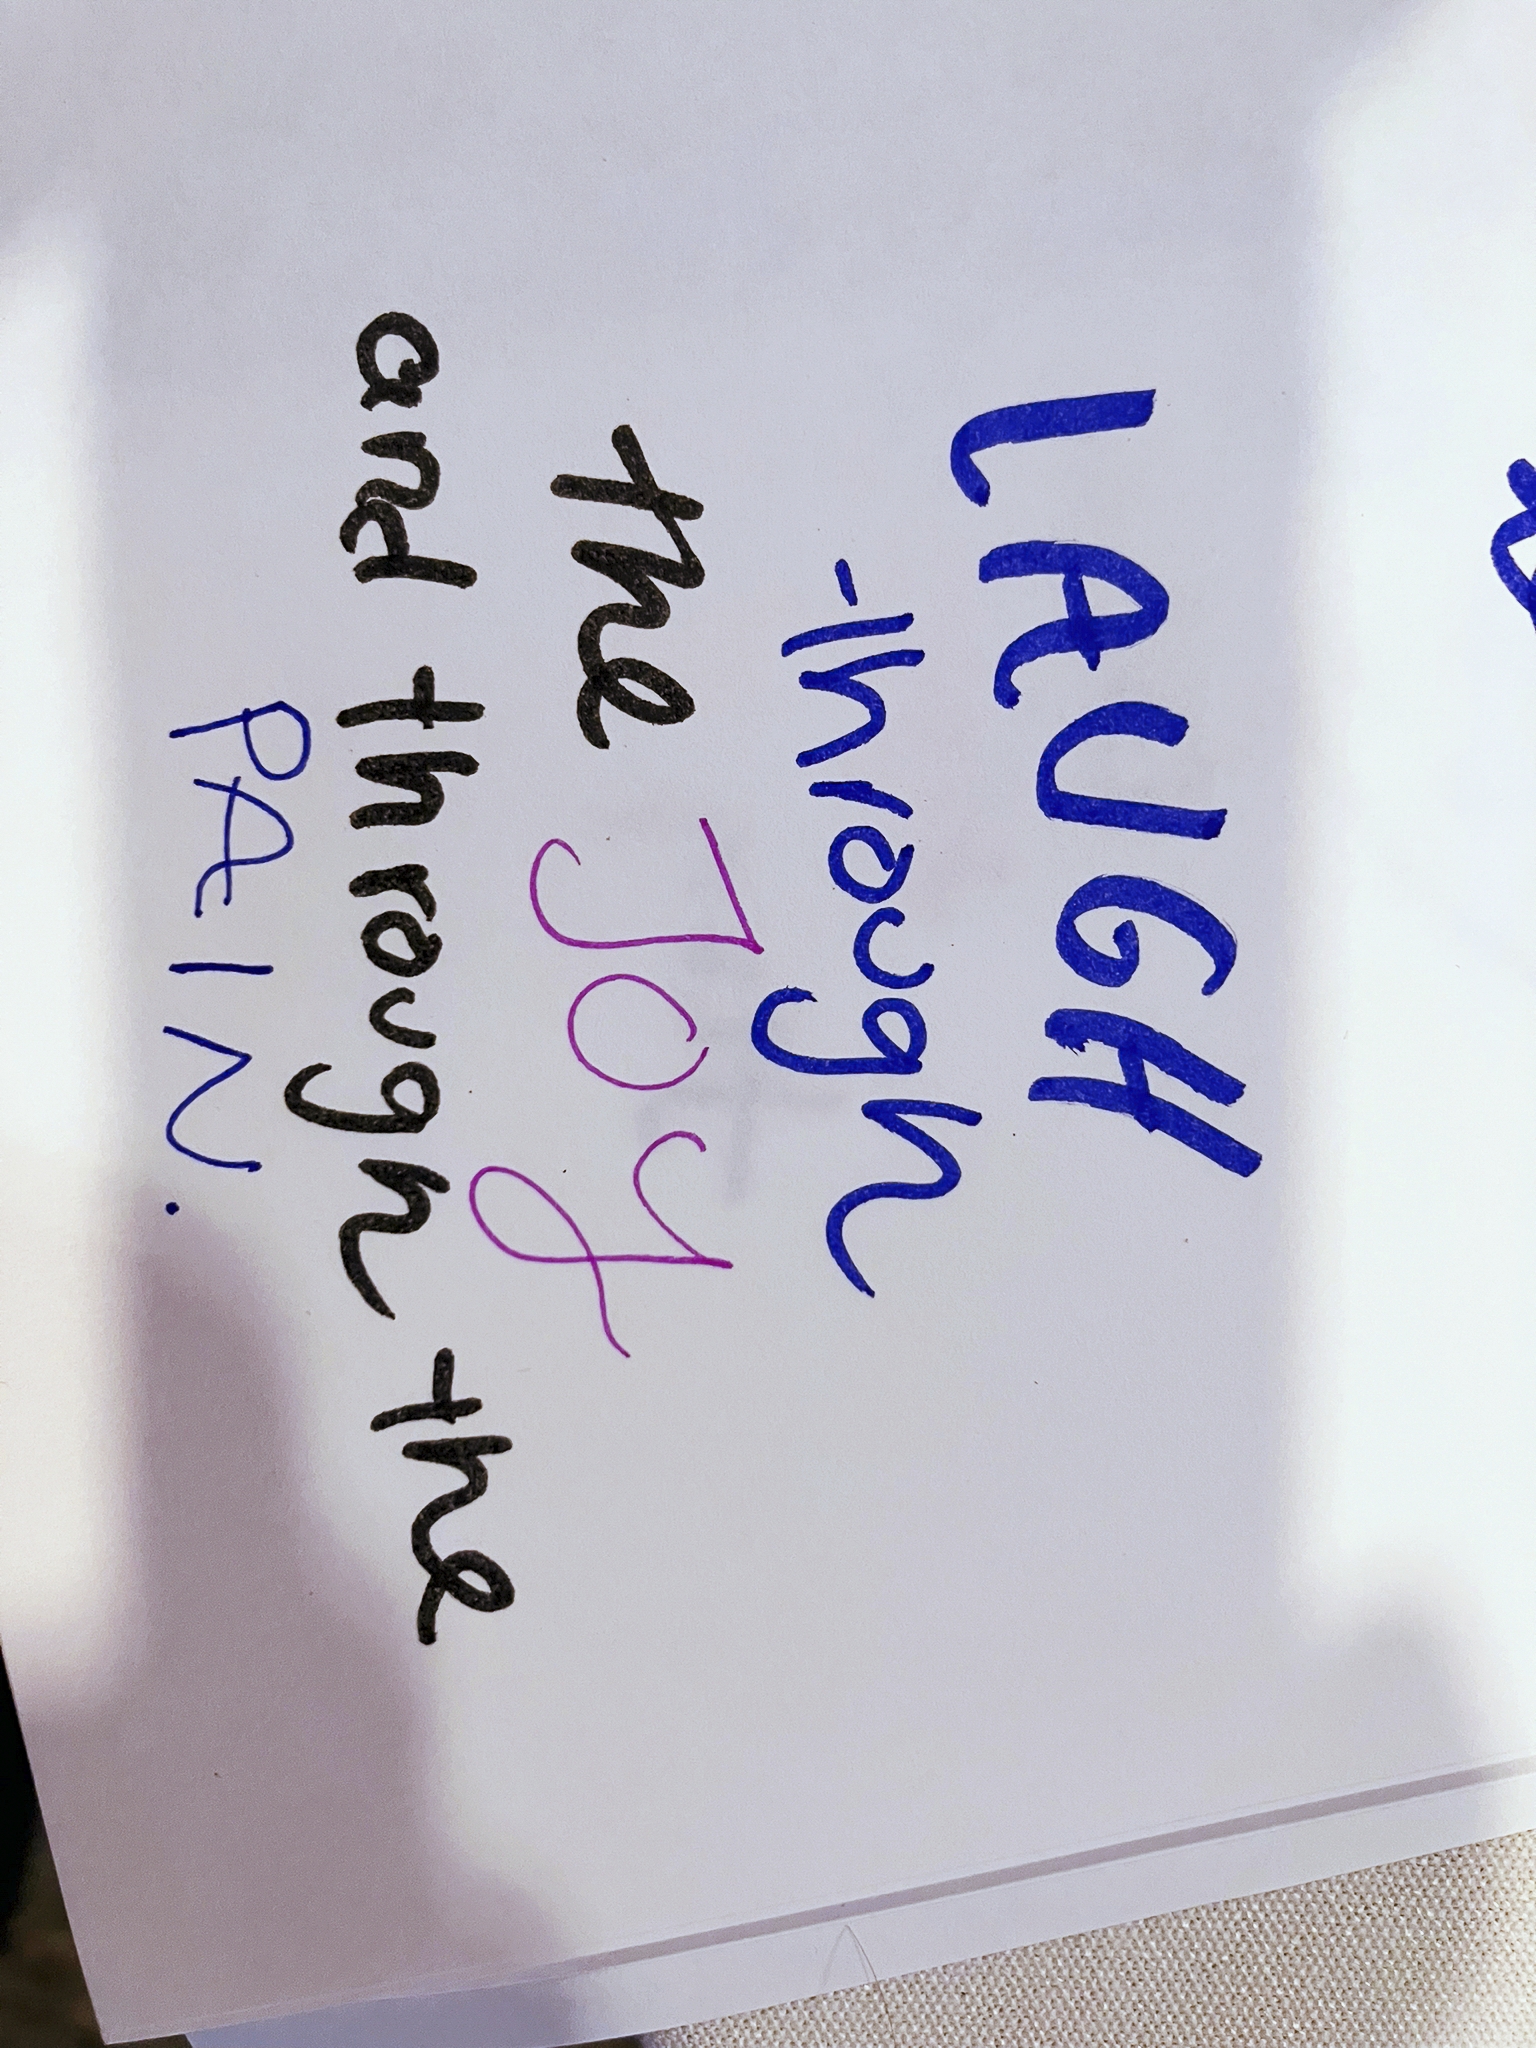 LAUGH
through
the JOY
and through the
PAIN.